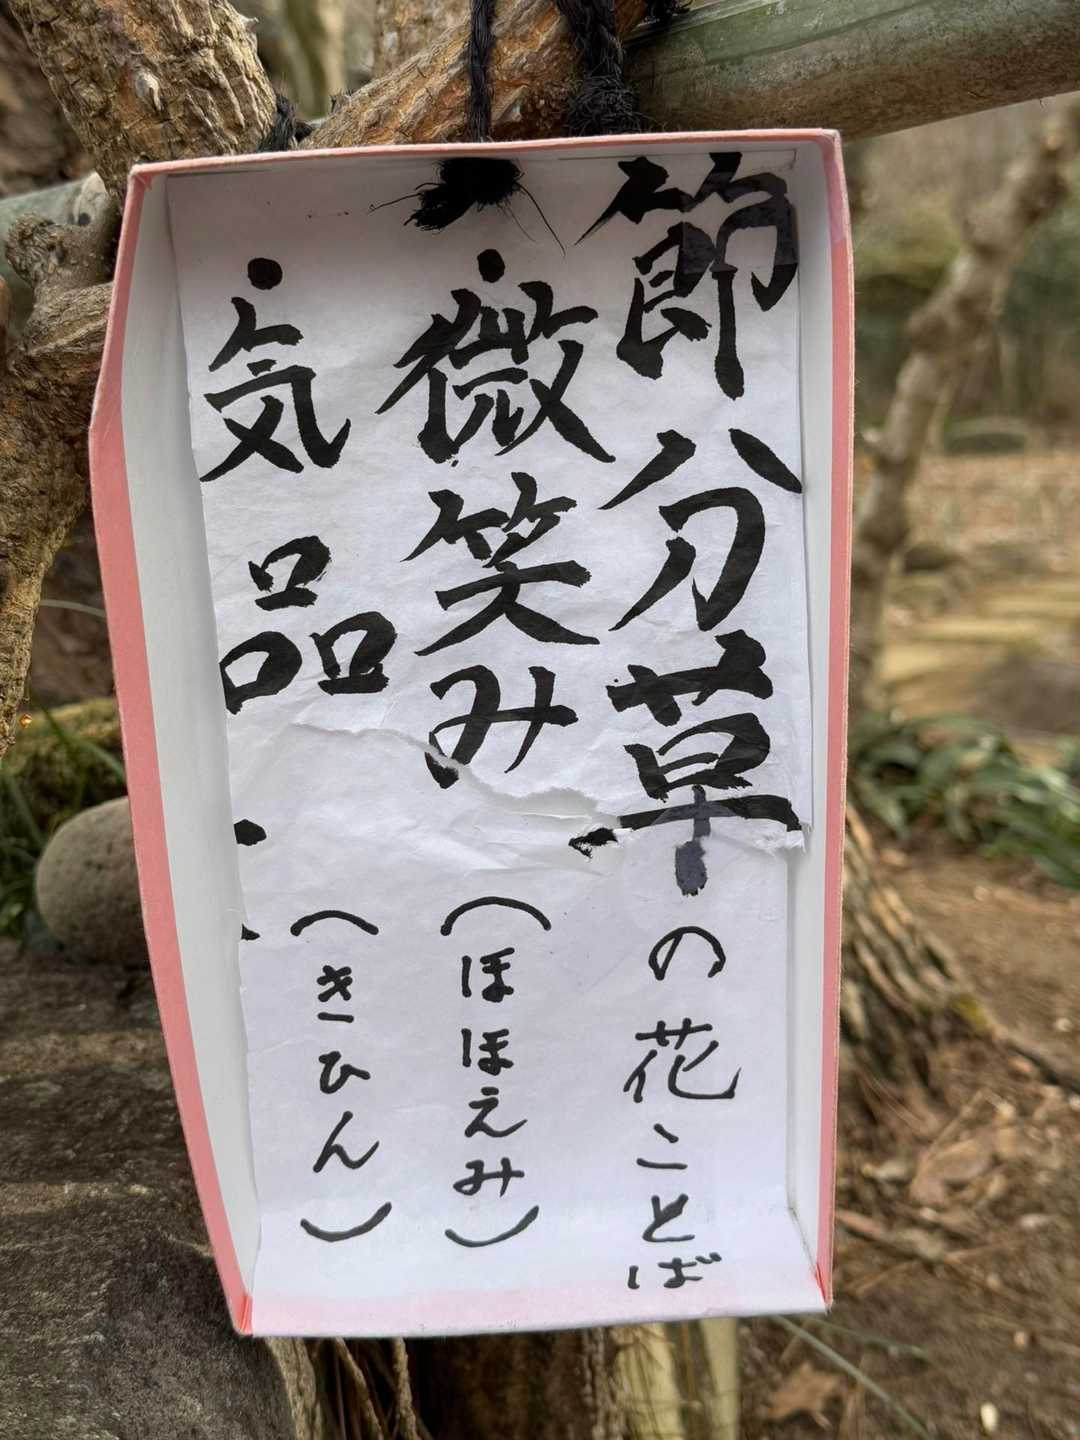 節分草の花ことば
・微笑み(ほほえみ)
・気品(きひん)